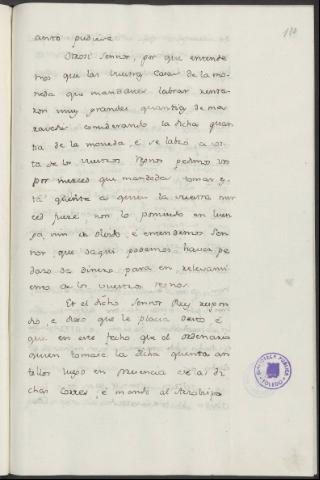 118
anto pudiere
Otrosi Sennor, por que entende
mos que las vuestras Casas de la mo
neda que mandamos labrar renta
ron muy grandes quantias de ma
ravedis considerando la dicha quan
tia de la moneda, e se labró, a cos
ta de los vuestros Regnos pedimos vos
por merced que mandedes tomar es
ta quenta a quien la vuestra mer
ced fuere non lo poniendo en luen
ga, nin en olvido, e entendemos Sen
nor, que de aqui podemos haver pe
dazo de dinero para en relevami
ento a los vuestros regnos.
Et el dicho Sennor Rey respon
dio, e dixo que le placia desto, e
que en este fecho que el ordenaria
quien tomase la dicha quenta an
tellos luego en presencia de las di
chas Cortes, e mandó al Arzobispo
BIBLIOTECA PÚBLICA
TOLEDO